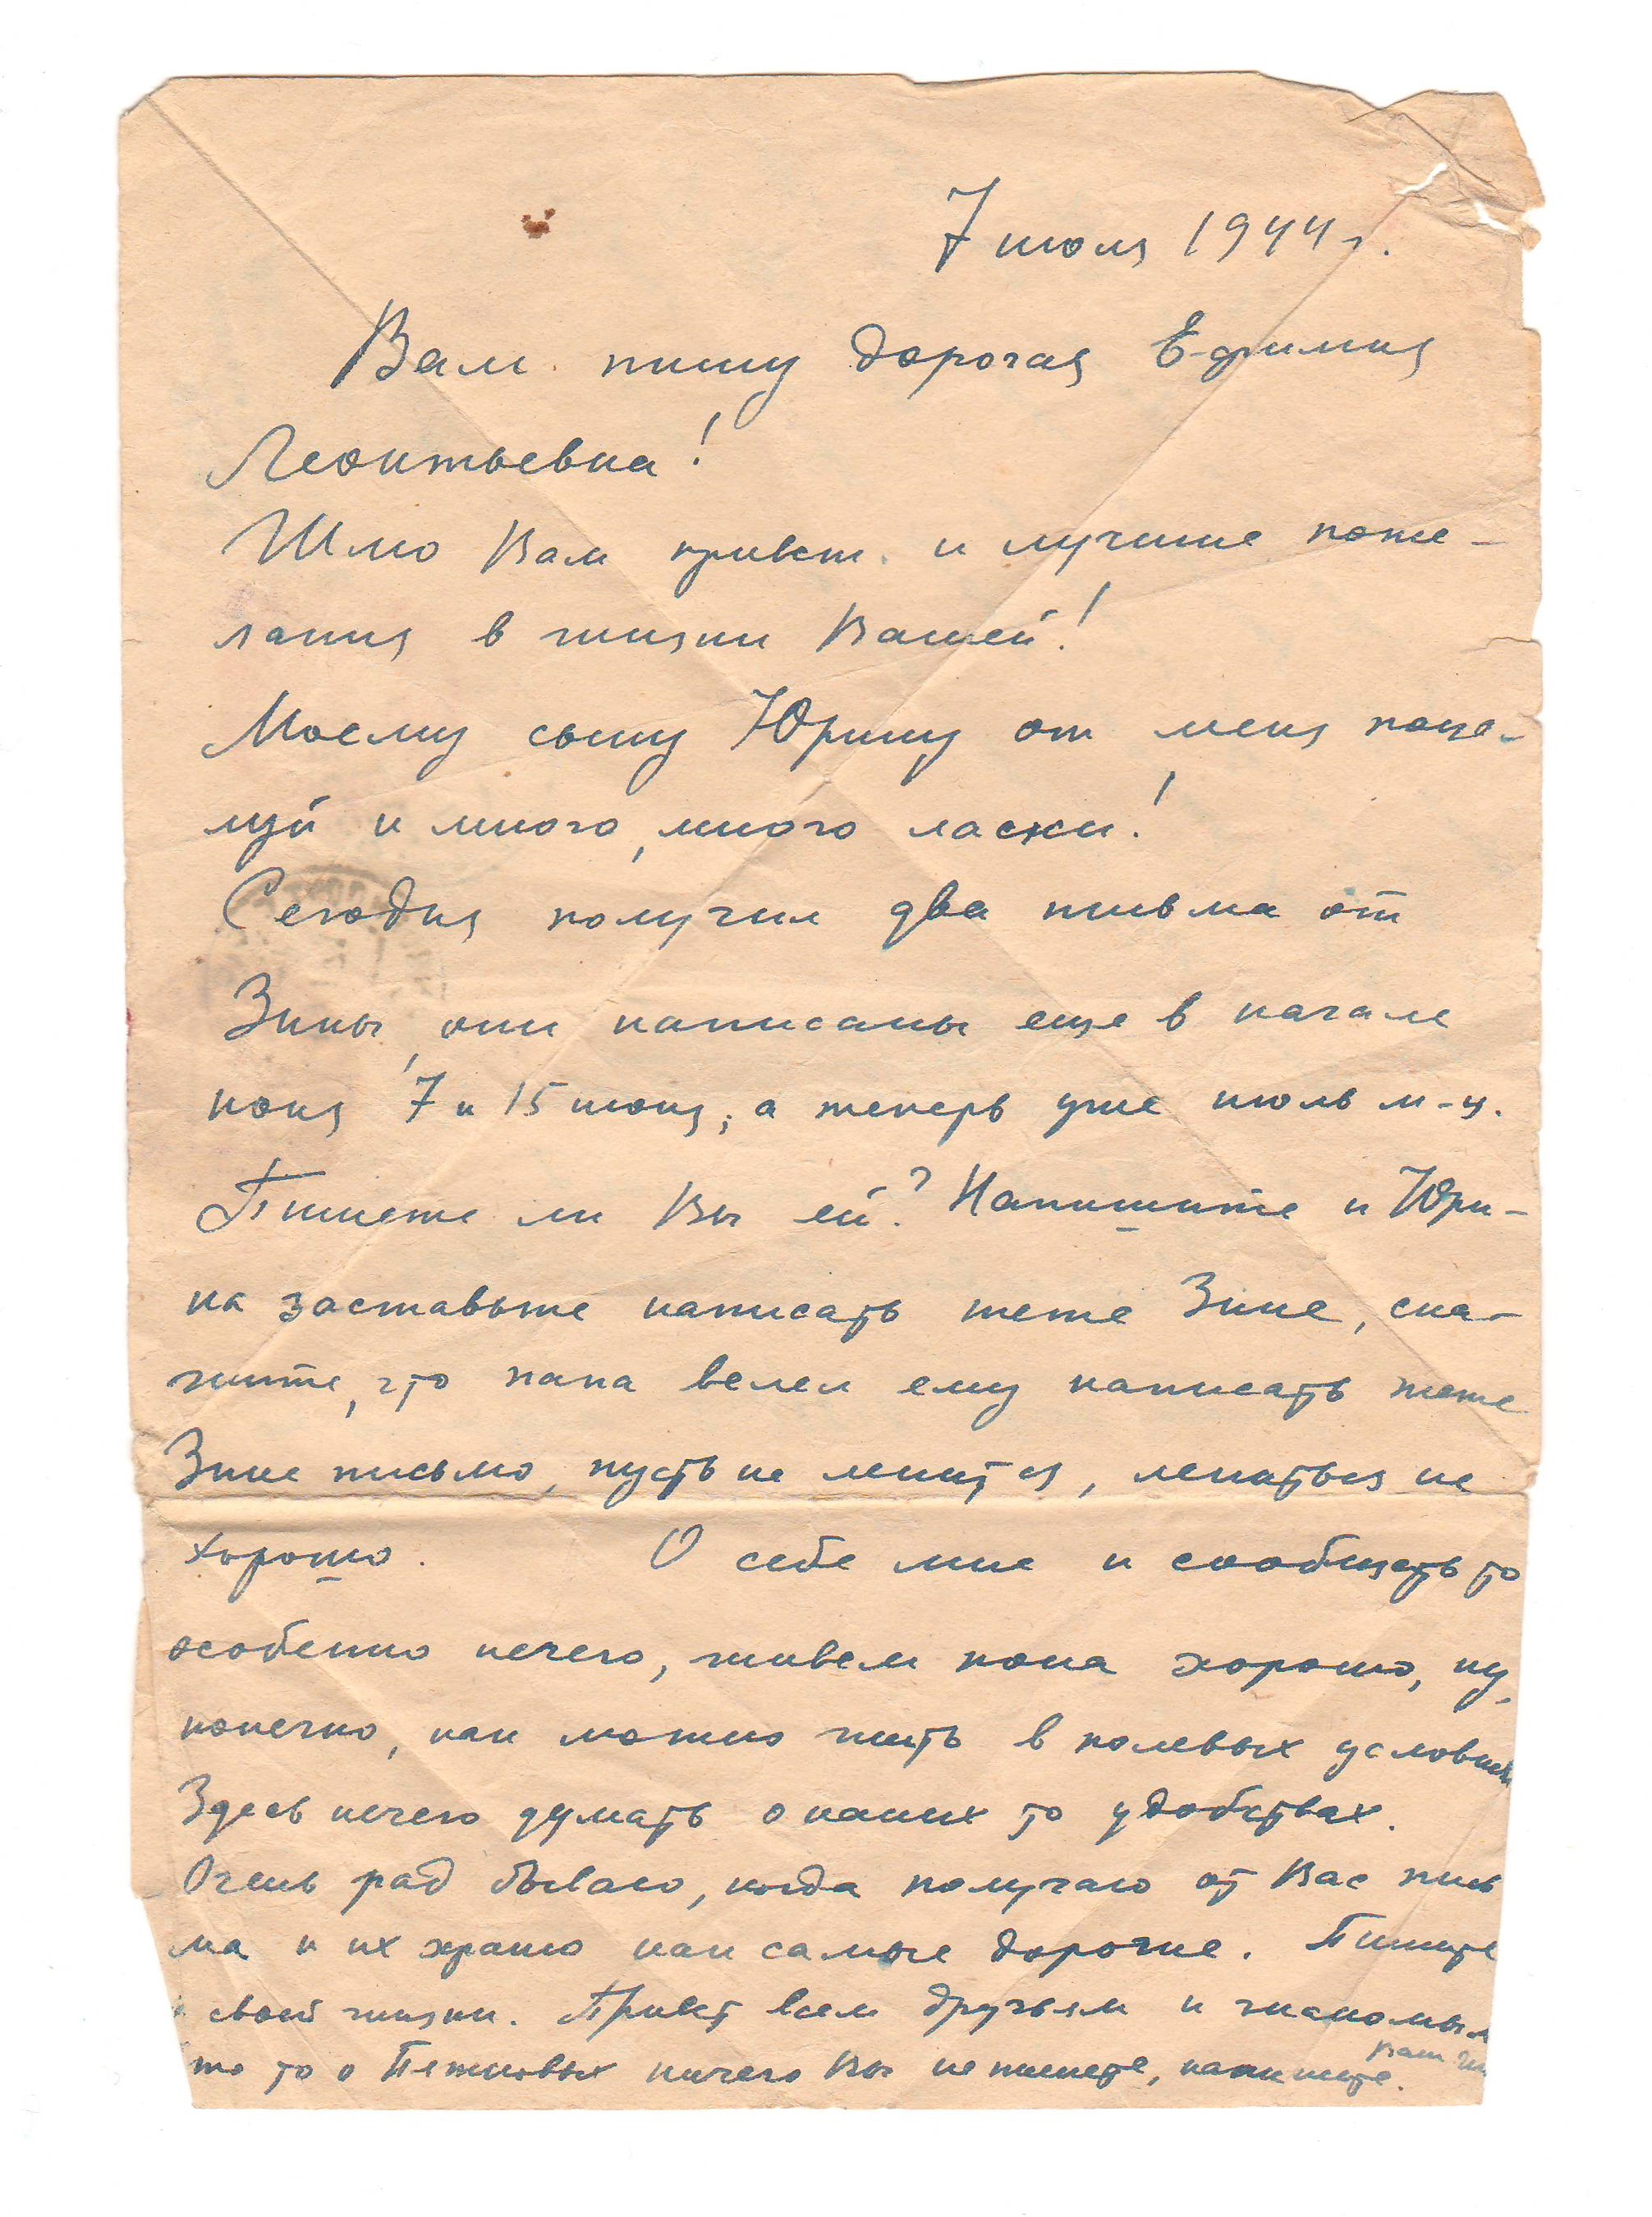 7 июля 1944 г.
Вам пишу дорогая Ефимия
Леонтьевна!
Шлю Вам привет и лучшие поже-
лания в жизни Вашей!
Моему сыну Юрику от меня поце-
луй и много, много ласки!
Сегодня получил два письма от
Зины, они написаны еще в начале
июня 7 и 15 июня, а теперь уже июль м-ц.
Пишете ли Вы ей? Напишите и Юри-
ка заставьте написать тете Зине, ска-
жите, что папа велел ему написать тете
Зине письмо, пусть не ленится, лениться не
хорошо. О себе мне и сообщать то
особенно нечего, живем пока хорошо, ну,
конечно, как можно жить в полевых условиях
Здесь нечего думать о каких то удобствах.
Очень рад бываю, когда получаю от Вас пись
ма и их храню как самые дорогие. Пишите
о своей жизни. Привет всем друзьям и знакомым
что то о ничего Вы не пишете, напишите.
Ваш